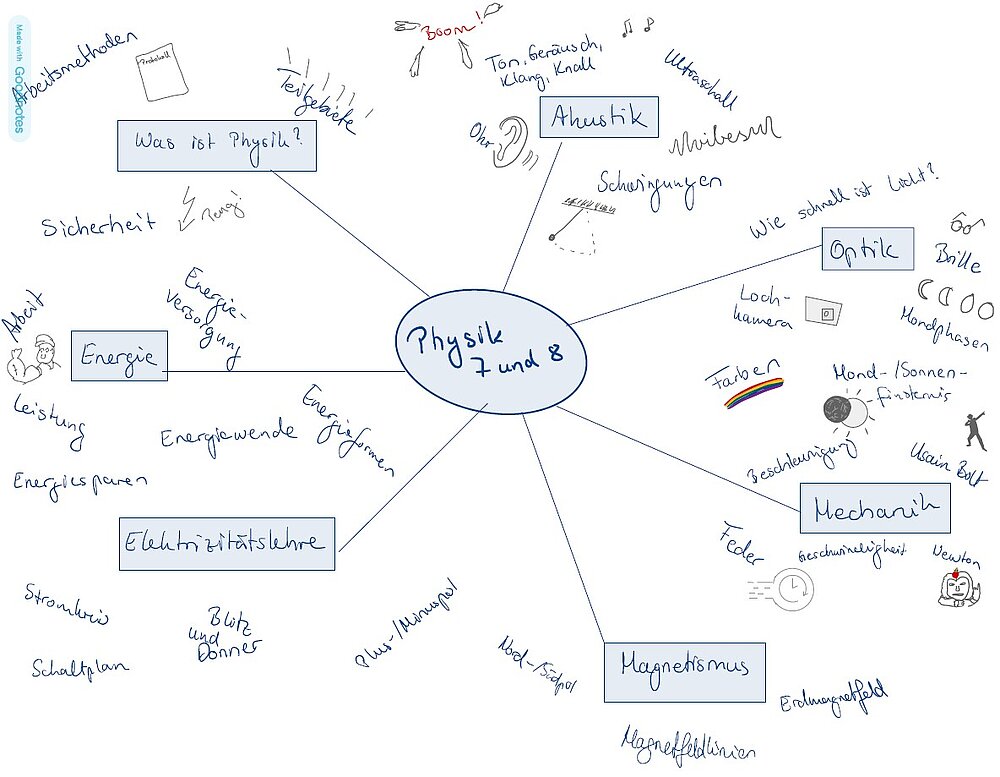 Made with Goodnotes
Arbeitsmethoden
Protokoll
Teilgebiete
Was ist Physik?
Sicherheit
Boom!
Ton, Geräusch,
Klang, Knall
Ultraschall
Akustik
Ohr
Schwingungen
Wie schnell ist Licht?
Optik
Brille
Loch-
kamera
Mondphasen
Farben
Mond-/Sonnen-
finsternis
Physik
7 und 8
Arbeit
Energie-
versorgung
Energie
Leistung
Energiewende
Energieformen
Energiesparen
Beschleunigung
Usain Bolt
Mechanik
Feder
Geschwindigkeit
Newton
Elektrizitätslehre
Stromkreis
Blitz
und
Donner
Schaltplan
Plus-/Minuspol
Nord-/Südpol
Magnetismus
Erdmagnetfeld
Magnetfeldlinien